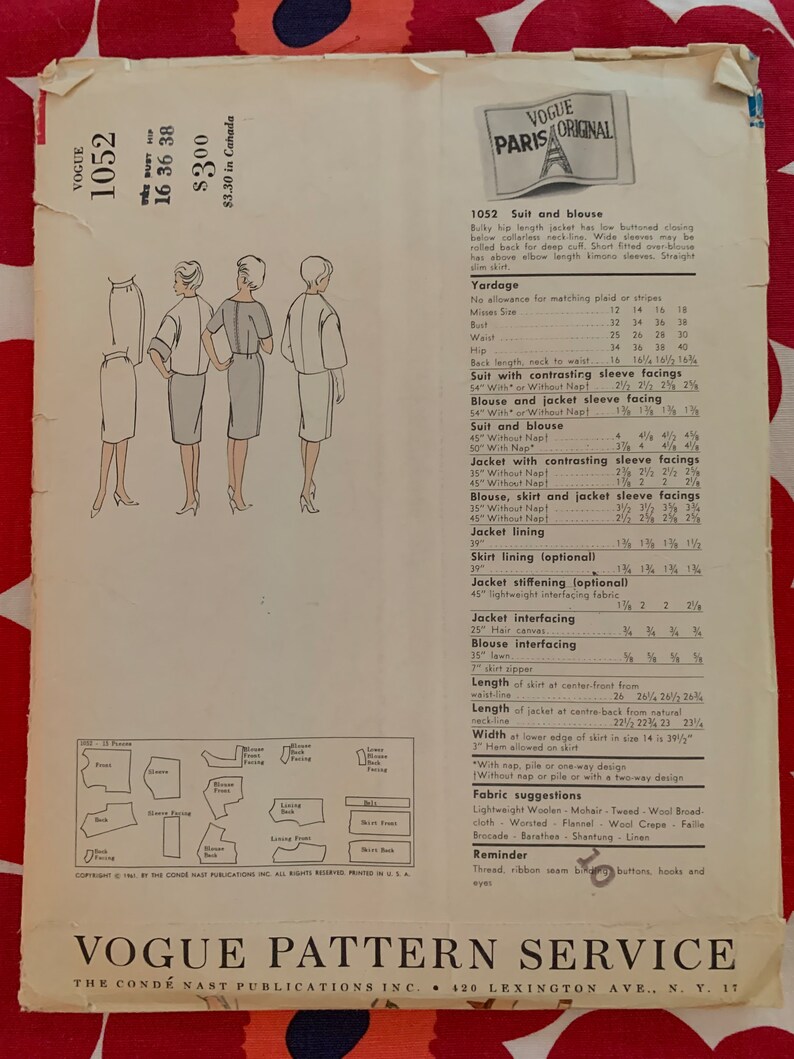 VOGUE
1052
SIZE BUST HIP
16 36 38
$3.00
$3.30 in Canada
VOGUE
PARIS ORIGINAL
1052 Suit and blouse
Bulky hip length jacket has low buttoned closing
below collarless neck-line. Wide sleeves may be
rolled back for deep cuff. Short fitted over-blouse
has above elbow length kimono sleeves. Straight
slim skirt.
Yardage
No allowance for matching plaid or stripes
Misses Size 12 14 16 18
Bust 32 34 36 38
Waist 25 26 28 30
Hip 34 36 38 40
Back length, neck to waist 16 16¼ 16½ 16¾
Suit with contrasting sleeve facings
54" With* or Without Nap† 2½ 2½ 2⅝ 2⅝
Blouse and jacket sleeve facing
54" With* or Without Nap† 1⅜ 1⅜ 1⅜ 1⅜
Suit and blouse
45" Without Nap† 4 4⅛ 4½ 4⅝
50" With Nap* 3⅞ 4 4⅛ 4⅛
Jacket with contrasting sleeve facings
35" Without Nap† 2⅜ 2½ 2½ 2⅝
45" Without Nap† 1⅞ 2 2 2⅛
Blouse, skirt and jacket sleeve facings
35" Without Nap† 3½ 3½ 3⅝ 3¾
45" Without Nap† 2½ 2⅝ 2⅝ 2⅝
Jacket lining
39" 1⅜ 1⅜ 1⅜ 1½
Skirt lining (optional)
39" 1¾ 1¾ 1¾ 1¾
Jacket stiffening (optional)
45" lightweight interfacing fabric
1⅞ 2 2 2⅛
Jacket interfacing
25" Hair canvas ¾ ¾ ¾ ¾
Blouse interfacing
35" lawn ⅝ ⅝ ⅝ ⅝
7" skirt zipper
Length of skirt at center-front from
waist-line 26 26¼ 26½ 26¾
Length of jacket at centre-back from natural
neck-line 22½ 22¾ 23 23¼
Width at lower edge of skirt in size 14 is 39½"
3" Hem allowed on skirt
*With nap, pile or one-way design
†Without nap or pile or with a two-way design
Fabric suggestions
Lightweight Woolen - Mohair - Tweed - Wool Broad-
cloth - Worsted - Flannel - Wool Crepe - Faille
Brocade - Barathea - Shantung - Linen
Reminder
Thread, ribbon seam binding, buttons, hooks and
eyes
10
1052 - 15 Pieces
Front
Sleeve
Blouse
Front
Facing
Blouse
Back
Facing
Lower
Blouse
Back
Facing
Back
Sleeve Facing
Blouse
Front
Lining
Back
Belt
Skirt Front
Back
Facing
Blouse
Back
Lining Front
Skirt Back
COPYRIGHT © 1961, BY THE CONDÉ NAST PUBLICATIONS INC. ALL RIGHTS RESERVED. PRINTED IN U. S. A.
VOGUE PATTERN SERVICE
THE CONDÉ NAST PUBLICATIONS INC. • 420 LEXINGTON AVE., N. Y. 17